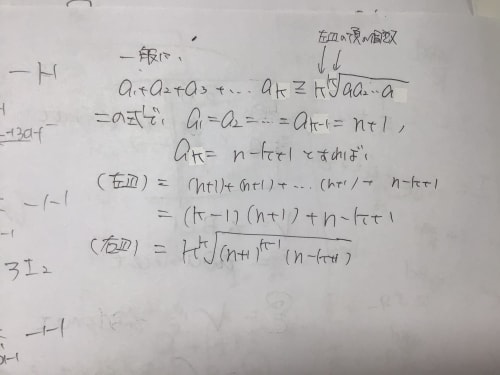 一般に、
左辺の項の個数
a₁+a₂+a₃+…aₖ ≧ k ᵏ√(aa₂…a)
この式で、a₁=a₂=…=aₖ₋₁=n+1,
aₖ= n-k+1 とすれば、
(左辺) = (n+1)+(n+1)+…(n+1)+ n-k+1
= (k-1)(n+1)+n-k+1
(右辺) = k ᵏ√((n+1)ᵏ⁻¹(n-k+1))
-1-1
3I₂
-1-1